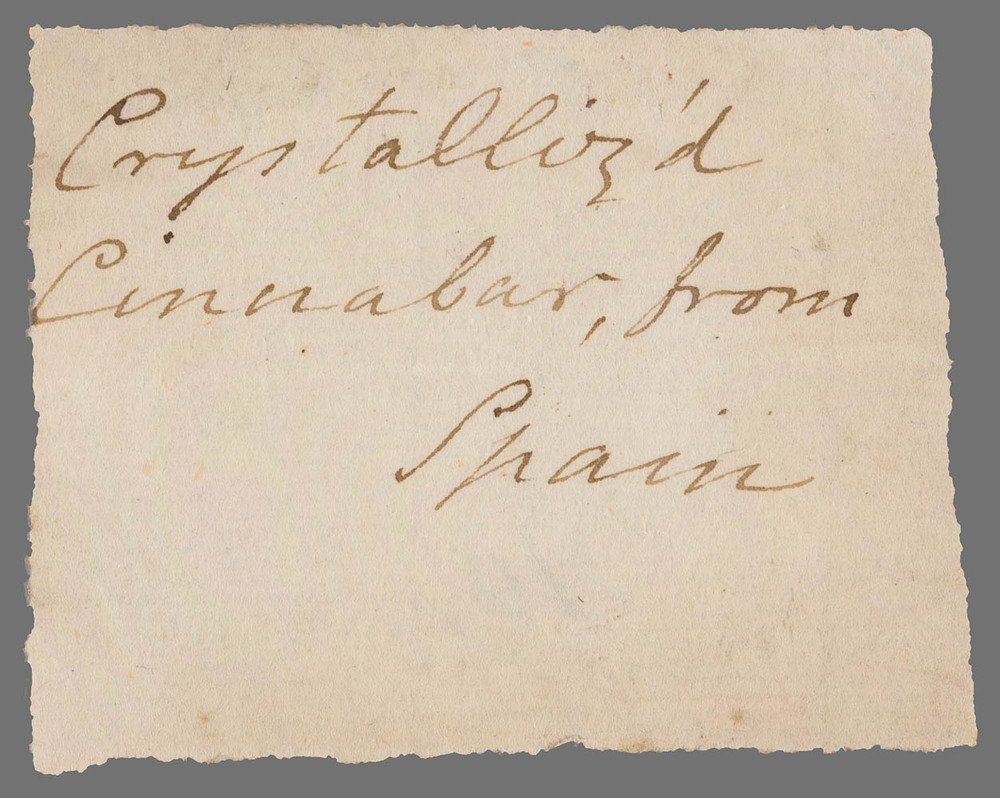 Crystalliz'd
Cinnabar, from
Spain